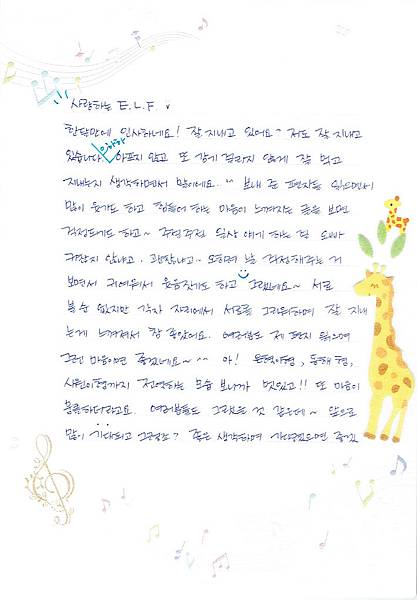 사랑하는 E.L.F ♥
한달만에 인사하네요! 잘 지내고 있어요~ 저도 잘 지내고
있습니다 으하하 아프지 않고 또 감기 걸리지 않게 잘 먹고
지내는지 생각하면서 말이에요..~ 보내 준 편지를 읽으면서
많이 웃기도 하고 힘들어 하는 마음이 느껴지는 글을 보면
걱정도 하고~ 주럭주럭 일상 얘기 하는 건 오빠
귀찮지 않냐고. 괜찮냐고~ 오히려 날 걱정해주는 거
보면서 귀여워서 웃음 짓기도 하고 그랬네요~ 서로
볼 순 없지만 각자 자리에서 서로를 그리워하며 잘 지내
는게 느껴져서 참 좋았어요. 여러분도 제 편지 읽으며
그런 마음이면 좋겠네요~ ^^ 아! 은혁이형, 동해형,
시원이형까지 전역하는 모습 보니까 멋있고!! 또 마음이
뭉클하더라고요. 여러분들도 그랬을 것 같은데~ 앞으로
많이 기대되고 그렇죠? 좋은 생각하며 기다렸으면 좋겠